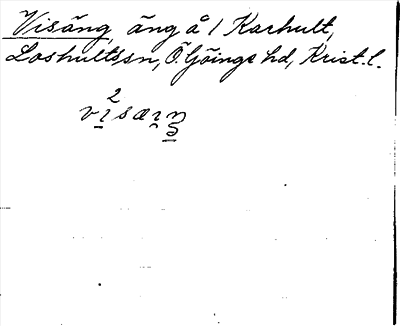 Visäng, äng å 1 Karhult,
Loshults sn, Ö. Göinge hd, Krist. l.